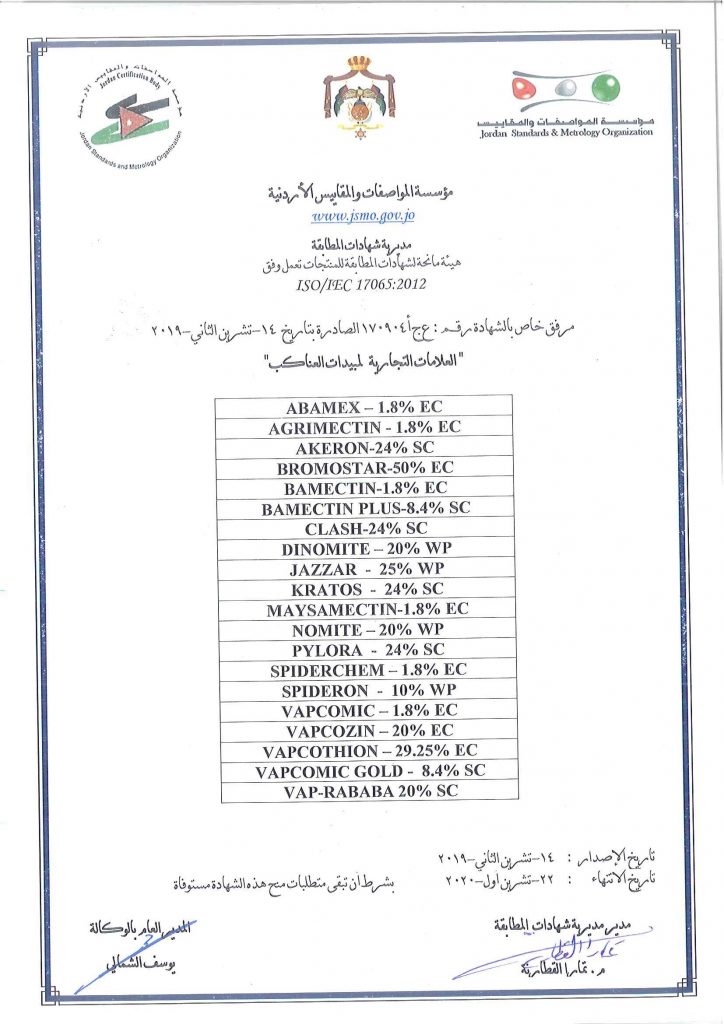 مؤسسة المواصفات والمقاييس الأردنية
Jordan Certification Body
Jordan Standards and Metrology Organization
مؤسسة المواصفات والمقاييس
Jordan Standards & Metrology Organization
مؤسسة المواصفات والمقاييس الأردنية
www.jsmo.gov.jo
مديرية شهادات المطابقة
هيئة مانحة لشهادات المطابقة للمنتجات تعمل وفق
ISO/IEC 17065:2012
مرفق خاص بالشهادة رقم : ع ج أ ١٧٠٩٠٤ الصادرة بتاريخ ١٤-تشرين الثاني-٢٠١٩
"العلامات التجارية لمبيدات العناكب"
ABAMEX – 1.8% EC
AGRIMECTIN - 1.8% EC
AKERON-24% SC
BROMOSTAR-50% EC
BAMECTIN-1.8% EC
BAMECTIN PLUS-8.4% SC
CLASH-24% SC
DINOMITE – 20% WP
JAZZAR - 25% WP
KRATOS - 24% SC
MAYSAMECTIN-1.8% EC
NOMITE – 20% WP
PYLORA - 24% SC
SPIDERCHEM – 1.8% EC
SPIDERON - 10% WP
VAPCOMIC – 1.8% EC
VAPCOZIN – 20% EC
VAPCOTHION – 29.25% EC
VAPCOMIC GOLD - 8.4% SC
VAP-RABABA 20% SC
تاريخ الإصدار : ١٤-تشرين الثاني-٢٠١٩
تاريخ الانتهاء : ٢٢-تشرين اول-٢٠٢٠ بشرط أن تبقى متطلبات منح هذه الشهادة مستوفاة
مدير مديرية شهادات المطابقة
تمارا القطارنة
م. تمارا القطارنة
المدير العام بالوكالة
يوسف الشمالي